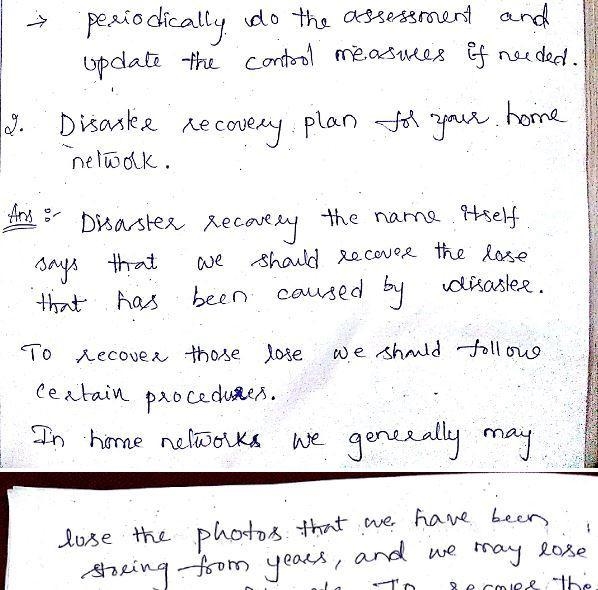 → periodically do the assessment and
update the control measures if needed.
2. Disaster recovery plan for your home
network.
Ans :- Disaster recovery the name itself
says that we should recover the lose
that has been caused by disaster.
To recover those lose we should follow
certain procedures.
In home networks we generally may
lose the photos that we have been
storing from years, and we may lose
To recover the